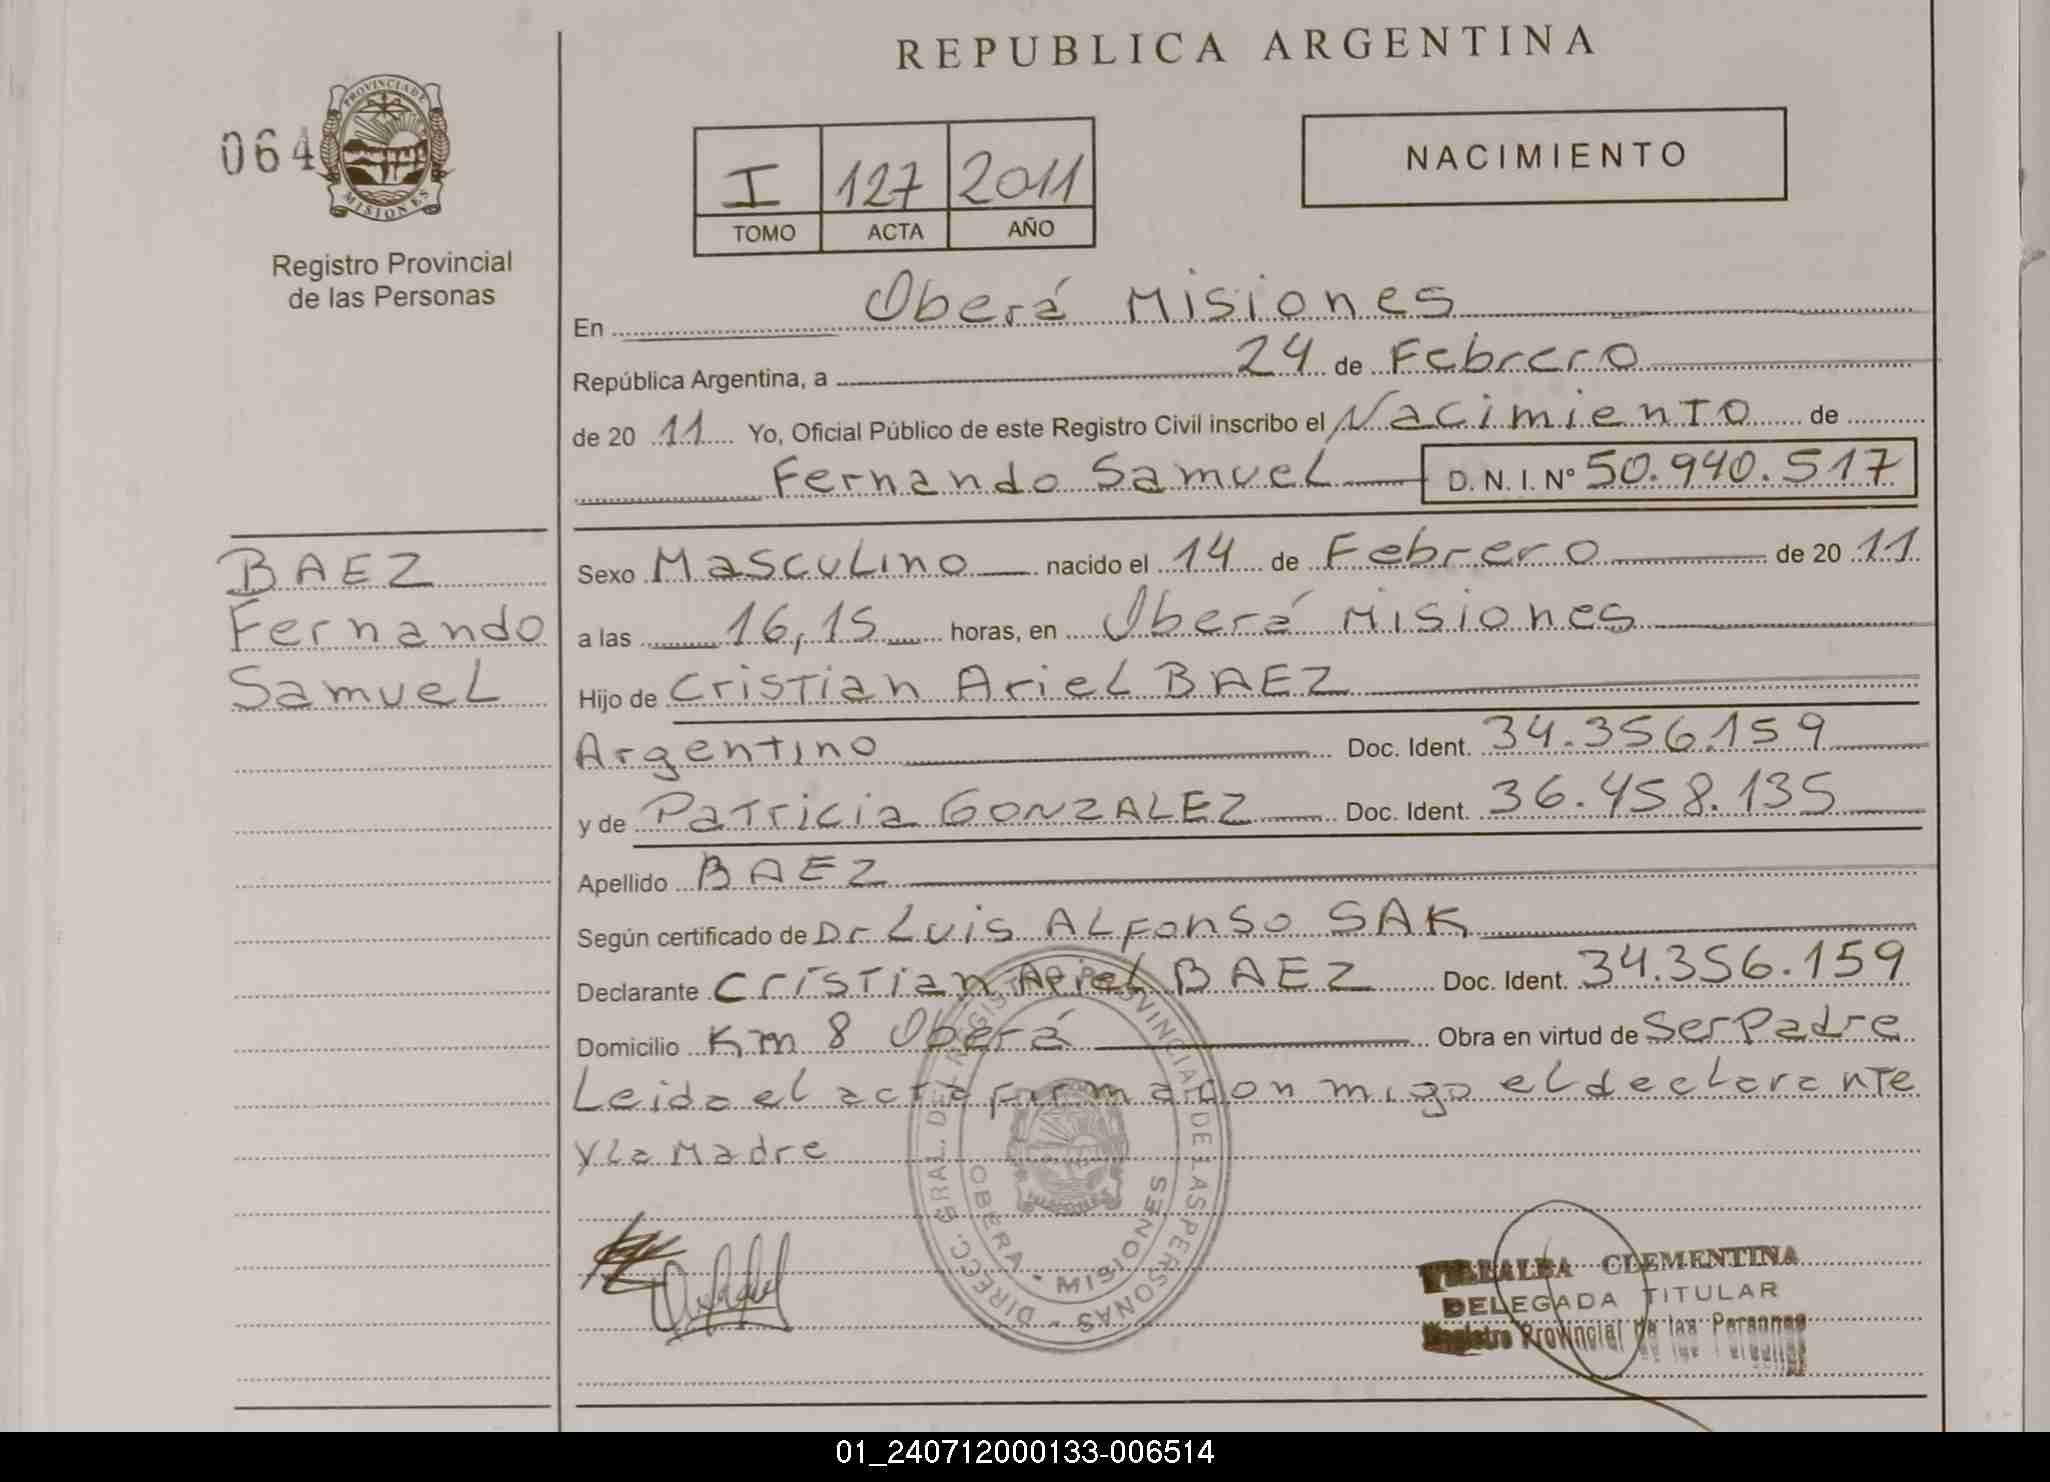 REPUBLICA ARGENTINA
064
PROVINCIA DE
MISIONES
Registro Provincial
de las Personas
I 127 2011
TOMO ACTA AÑO
NACIMIENTO
En Oberá Misiones
República Argentina, a 24 de Febrero
de 20 11 Yo, Oficial Público de este Registro Civil inscribo el Nacimiento de
Fernando Samuel D. N. I. Nº 50.940.517
BAEZ
Fernando
Samuel
Sexo Masculino nacido el 14 de Febrero de 20 11
a las 16,15 horas, en Oberá Misiones
Hijo de Cristian Ariel BAEZ
Argentino Doc. Ident. 34.356.159
y de Patricia GONZALEZ Doc. Ident. 36.458.135
Apellido BAEZ
Según certificado de Dr Luis Alfonso SAK
Declarante Cristian Ariel BAEZ Doc. Ident. 34.356.159
Domicilio Km 8 Oberá Obra en virtud de Ser Padre
Leida el acta firma con migo el declarante
y la Madre
DIRECC. GRAL. DEL REGISTRO PROVINCIAL DE LAS PERSONAS
OBERA - MISIONES
CLEMENTINA
DELEGADA TITULAR
Registro Provincial de las Personas
01_240712000133-006514